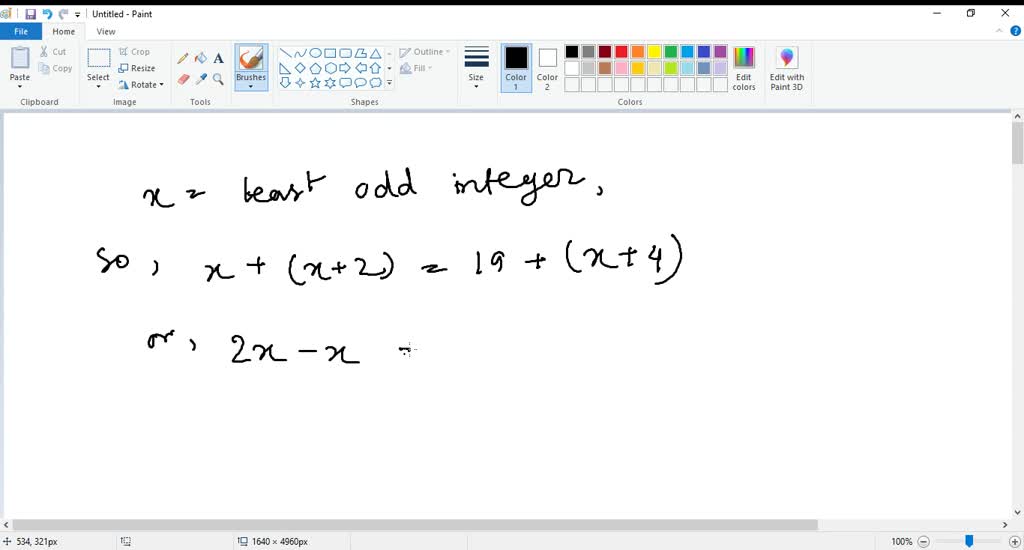 Untitled - Paint
File Home View
Paste Cut Copy Select Crop Resize Rotate Brushes Outline Fill Size Color 1 Color 2 Edit colors Edit with Paint 3D
Clipboard Image Tools Shapes Colors
x = least odd integer,
So, x + (x+2) = 19 + (x+4)
or, 2x - x
534, 321px 1640 × 4960px 100%